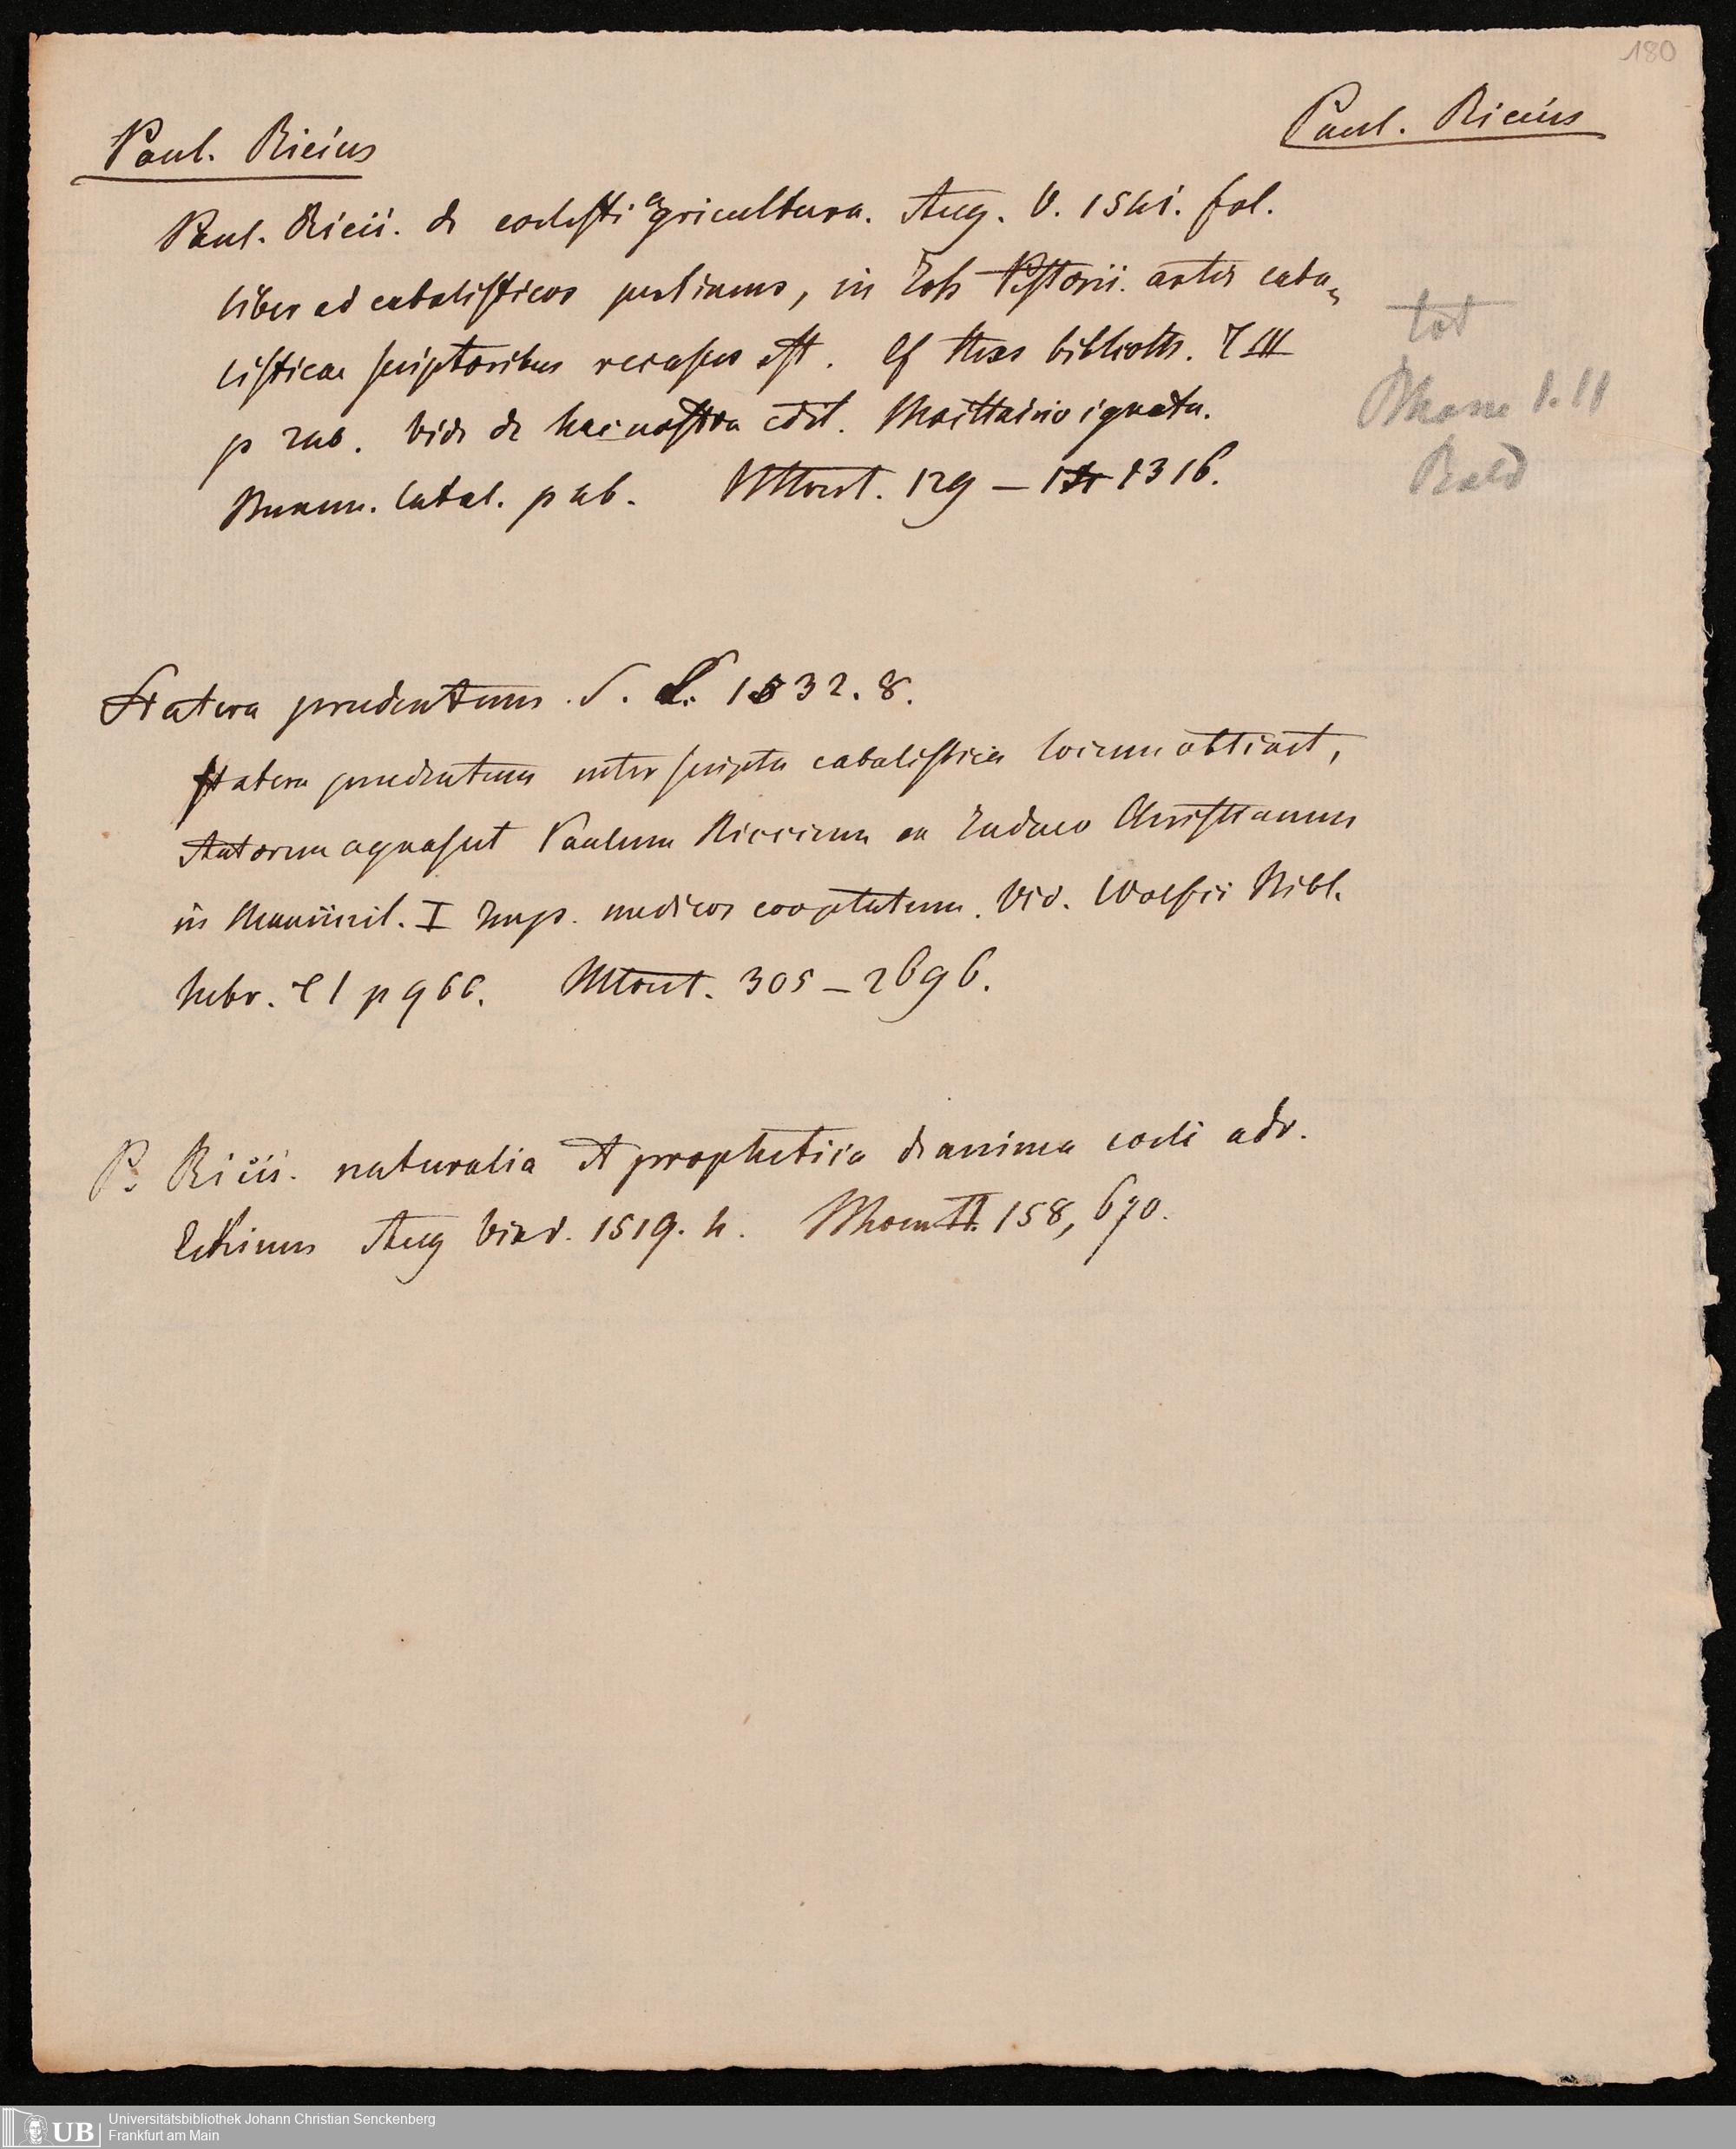 180
Paul. Ricius
Paul. Ricius
Paul. Ricii. de coelesti agricultura. Aug. V. 1541. fol.
liber ad cabalisticos pertinens, in Joh Pistorii. artis caba=
listicae scriptoribus recusus est. Cf biblioth. T III
p 246. Vide de hac nostra edit. Maittairio ignota.
Catal. p 46. 129 – 1316.
tot
I. II
Statera prudentum. S. L. 1532. 8.
Statera prudentum inter scripta cabalistica locum obtinet,
Autorem agnoscit Paulum Riccium ex Judaeo Christianum
in Maximil. I Imp. medicos cooptatum. Vid. Wolfii Bibl.
hebr. T I p 966. 305 – 2696.
P. Ricii. naturalia et prophetica de anima coeli adv.
Eckium Aug Vind. 1519. 4. II. 158, 670.
UB Universitätsbibliothek Johann Christian Senckenberg
Frankfurt am Main